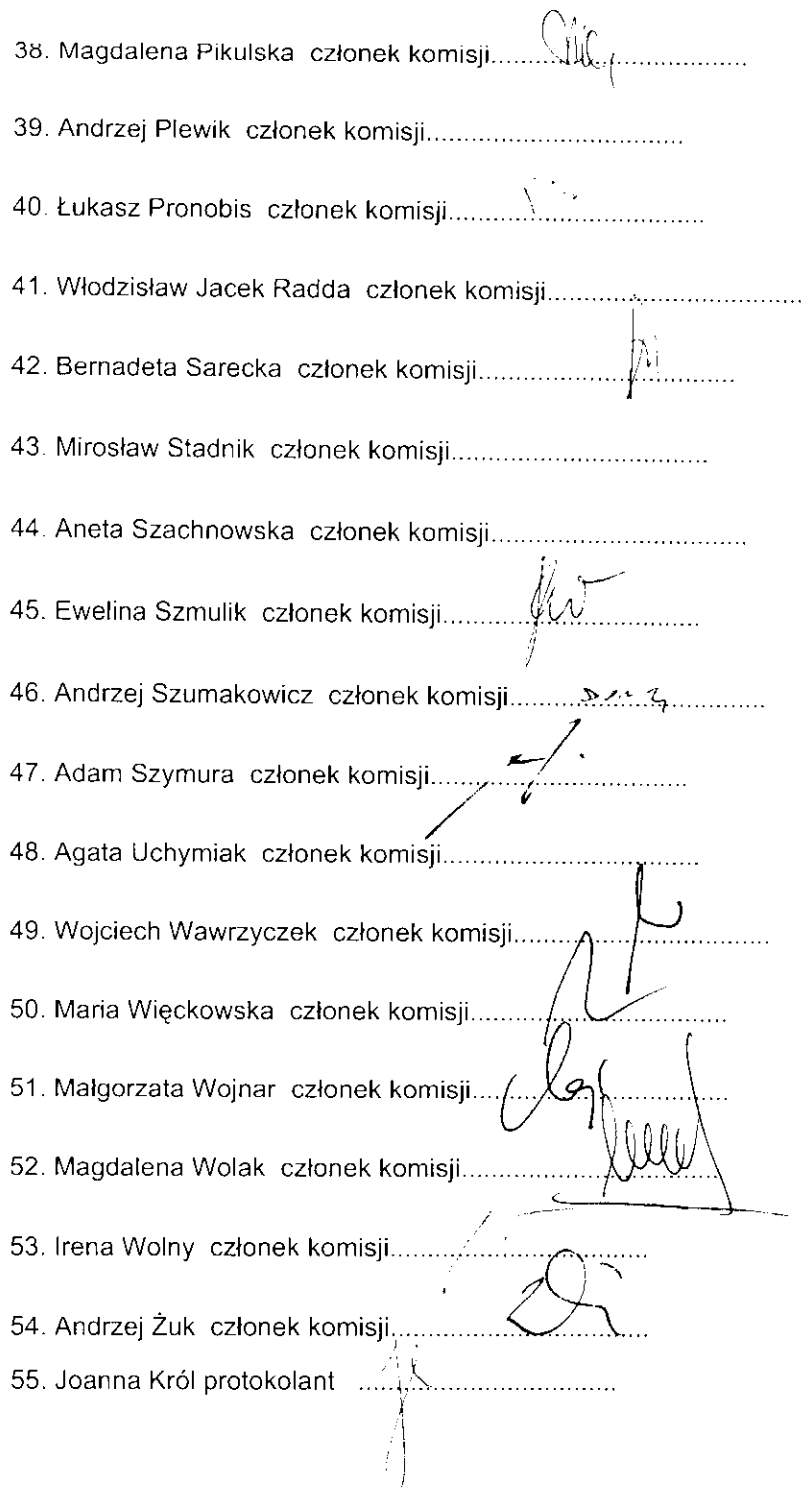 38. Magdalena Pikulska członek komisji..............................
39. Andrzej Plewik członek komisji..............................
40. Łukasz Pronobis członek komisji..............................
41. Włodzisław Jacek Radda członek komisji..............................
42. Bernadeta Sarecka członek komisji..............................
43. Mirosław Stadnik członek komisji..............................
44. Aneta Szachnowska członek komisji..............................
45. Ewelina Szmulik członek komisji..............................
46. Andrzej Szumakowicz członek komisji..............................
47. Adam Szymura członek komisji..............................
48. Agata Uchymiak członek komisji..............................
49. Wojciech Wawrzyczek członek komisji..............................
50. Maria Więckowska członek komisji..............................
51. Małgorzata Wojnar członek komisji..............................
52. Magdalena Wolak członek komisji..............................
53. Irena Wolny członek komisji..............................
54. Andrzej Żuk członek komisji..............................
55. Joanna Król protokolant ..............................